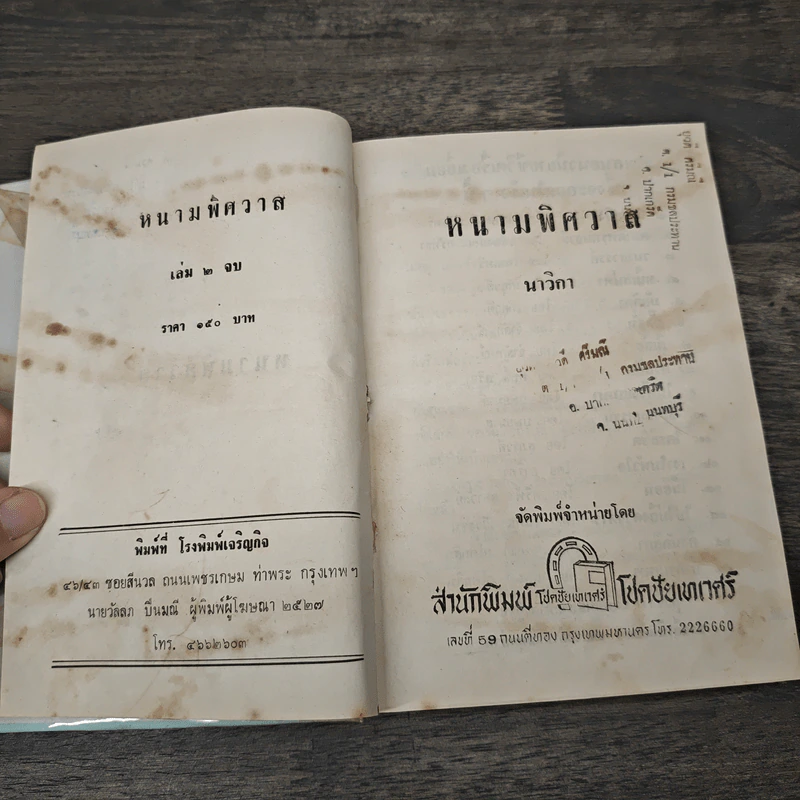 หนามพิศวาส
เล่ม ๒ จบ
ราคา ๑๕๐ บาท
พิมพ์ที่ โรงพิมพ์เจริญกิจ
๔๖/๔๓ ซอยสีนวล ถนนเพชรเกษม ท่าพระ กรุงเทพฯ
นายวัลลภ ปิ่นมณี ผู้พิมพ์ผู้โฆษณา ๒๕๒๗
โทร. ๔๖๖๒๖๐๓
หนามพิศวาส
นาวิกา
ศรีมณี
กรมชลประทาน
อ.
จ. นนทบุรี
จัดพิมพ์จำหน่ายโดย
สำนักพิมพ์ โชคชัยเทเวศร์ โชคชัยเทเวศร์
เลขที่ 59 ถนนตีทอง กรุงเทพมหานคร โทร. 2226660